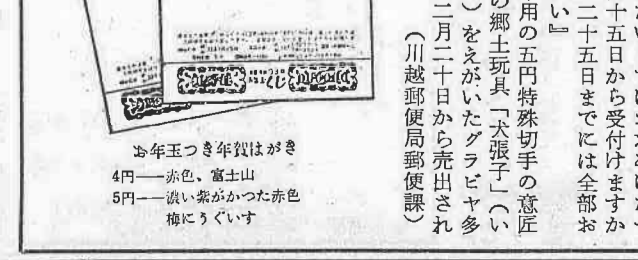 十五日から受付けますか
二十五日までには全部お
い』
用の五円特殊切手の意匠
の郷土玩具「犬張子」（い
）をえがいたグラビヤ多
二月二十日から売出され
（川越郵便局郵便課）
くじ
お年玉つき年賀はがき
4円――赤色、富士山
5円――濃い紫がかつた赤色
梅にうぐいす